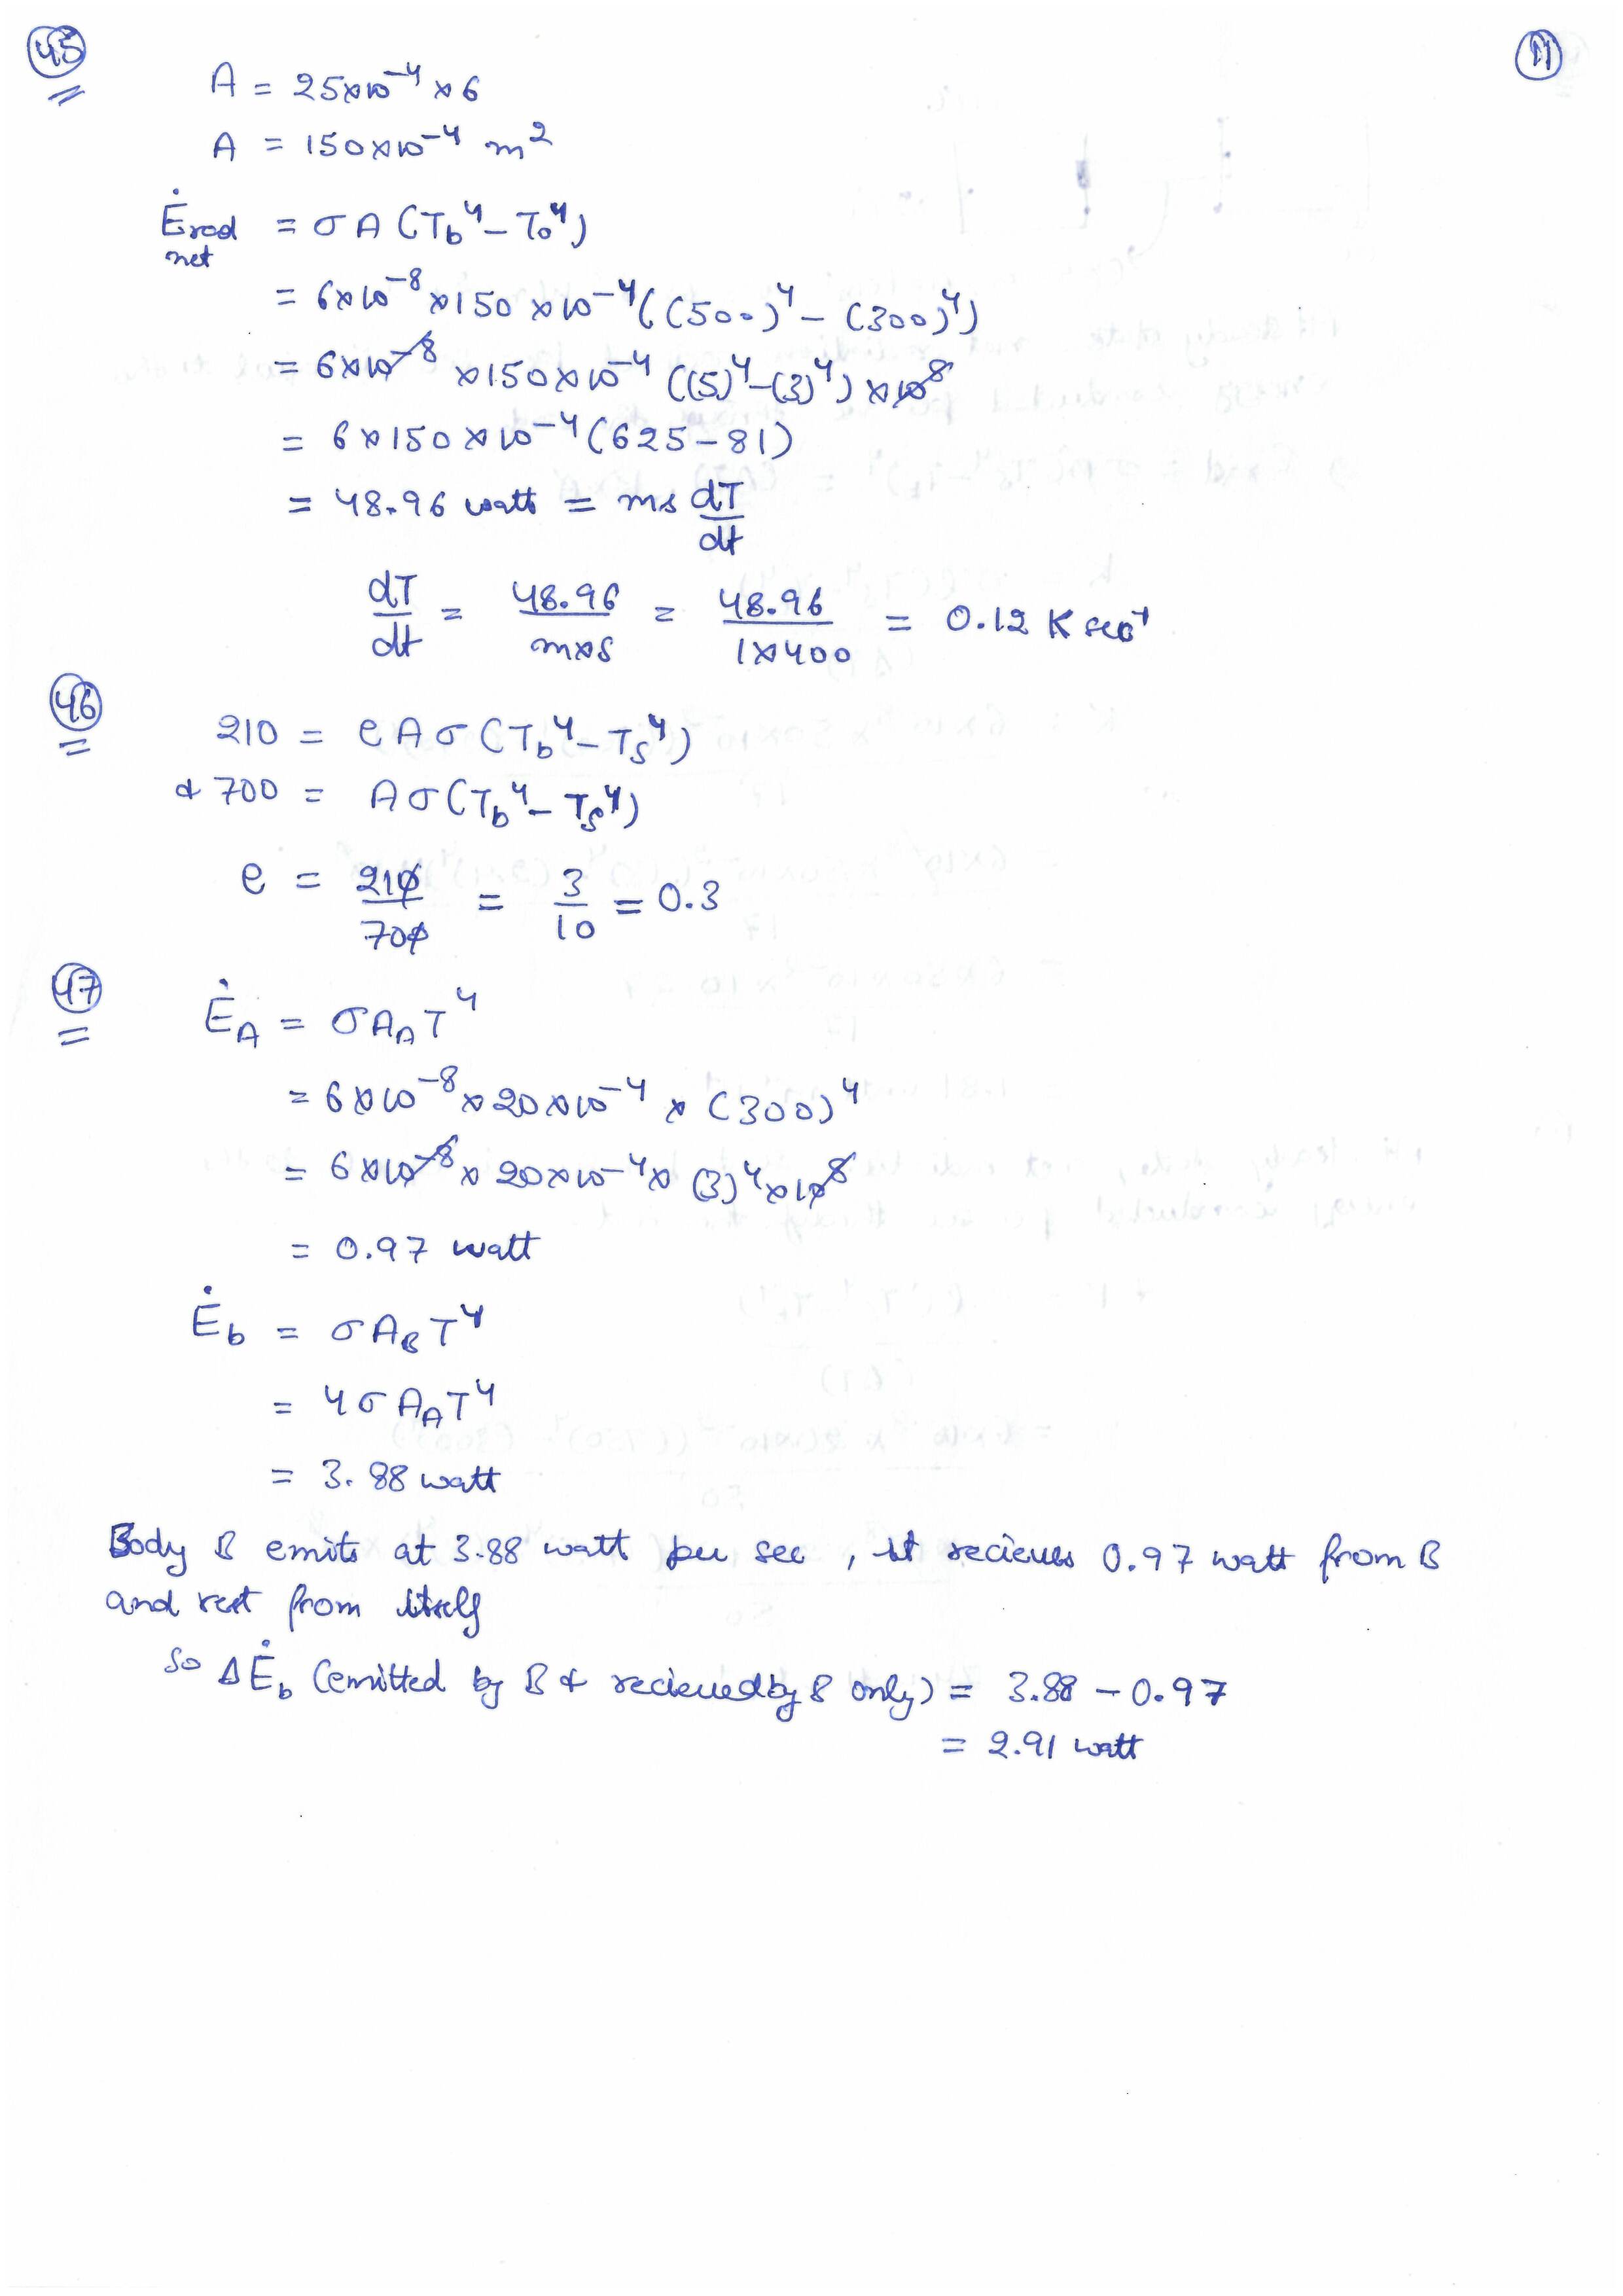 45
11
A = 25×10⁻⁴ × 6
A = 150×10⁻⁴ m²
Ė rad net = σ A (T_b⁴ – T_o⁴)
= 6×10⁻⁸ ×150 ×10⁻⁴ ((500)⁴ – (300)⁴)
= 6×10⁻⁸ ×150×10⁻⁴ ((5)⁴–(3)⁴) ×10⁸
= 6×150×10⁻⁴ (625–81)
= 48.96 watt = ms dT/dt
dT/dt = 48.96/m×s = 48.96/1×400 = 0.12 K sec⁻¹
46
210 = e A σ (T_b⁴ – T_s⁴)
& 700 = A σ (T_b⁴ – T_s⁴)
e = 210/700 = 3/10 = 0.3
47
Ė_A = σ A_A T⁴
= 6×10⁻⁸ × 20×10⁻⁴ × (300)⁴
= 6×10⁻⁸ × 20×10⁻⁴ × (3)⁴ ×10⁸
= 0.97 watt
Ė_b = σ A_B T⁴
= 4 σ A_A T⁴
= 3.88 watt
Body B emits at 3.88 watt per sec , it recieves 0.97 watt from B
and rest from itself
So ΔĖ_b (emitted by B & recieved by B only) = 3.88 – 0.97
= 2.91 watt